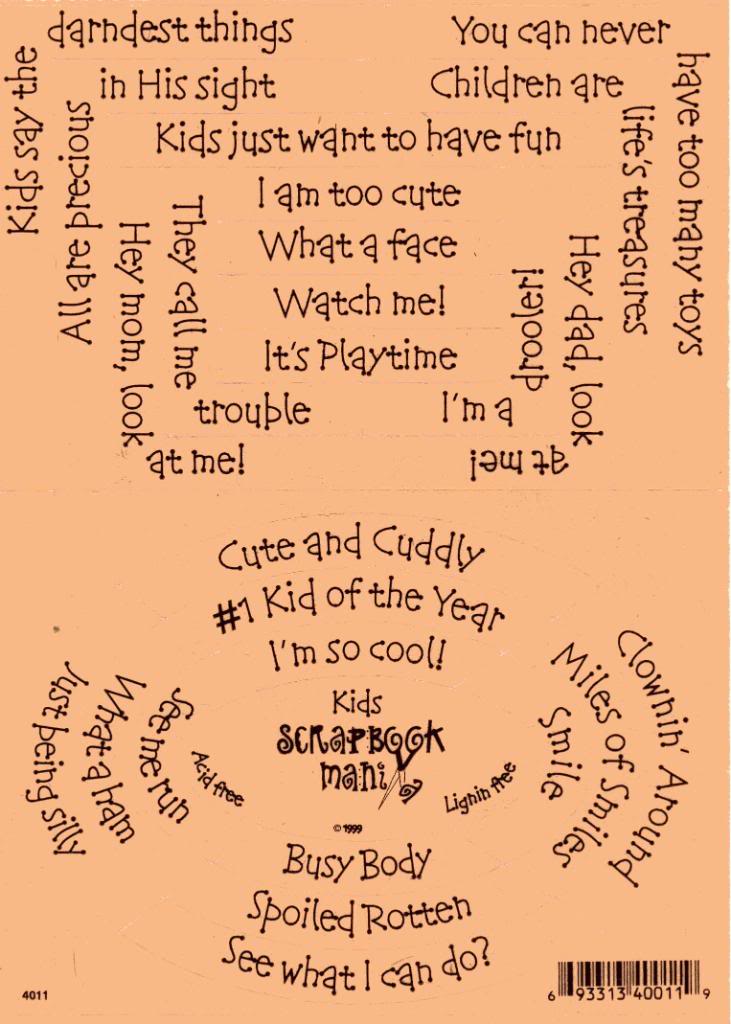 Kids say the
darndest things
All are precious
in His sight
You can never
have too many toys
Children are
life's treasures
Kids just want to have fun
I am too cute
What a face
Watch me!
It's Playtime
They call me
trouble
Hey mom, look
at me!
I'm a
drooler!
Hey dad, look
at me!
Cute and Cuddly
#1 Kid of the Year
I'm so cool!
Just being silly
What a ham
See me run
Acid free
Kids
SCRAPBOOK
mania
Lignin free
©1999
Smile
Miles of Smiles
Clownin' Around
Busy Body
Spoiled Rotten
See what I can do?
4011
6 93313 40011 9